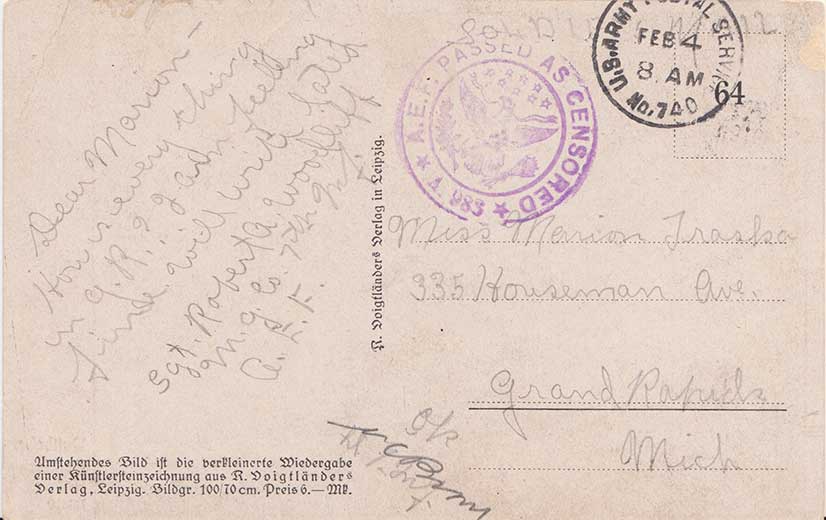 Dear Marion -
How is every thing
in G. R.? I am feeling
fine will write later
Sgt. Robert A Woodliff
M. G. Co. 7th Inf.
A. E. F.
Umstehendes Bild ist die verkleinerte Wiedergabe
einer Künstlersteinzeichnung aus R. Voigtländers
Verlag, Leipzig. Bildgr. 100/70 cm. Preis 6.— Mk.
R. Voigtländers Verlag in Leipzig.
A.E.F. PASSED AS CENSORED
A. 983
U.S. ARMY POSTAL SERVICE
FEB 4
8 AM
No. 740
64
Miss Marion Traska
335 Houseman Ave.
Grand Rapids
Mich
OK